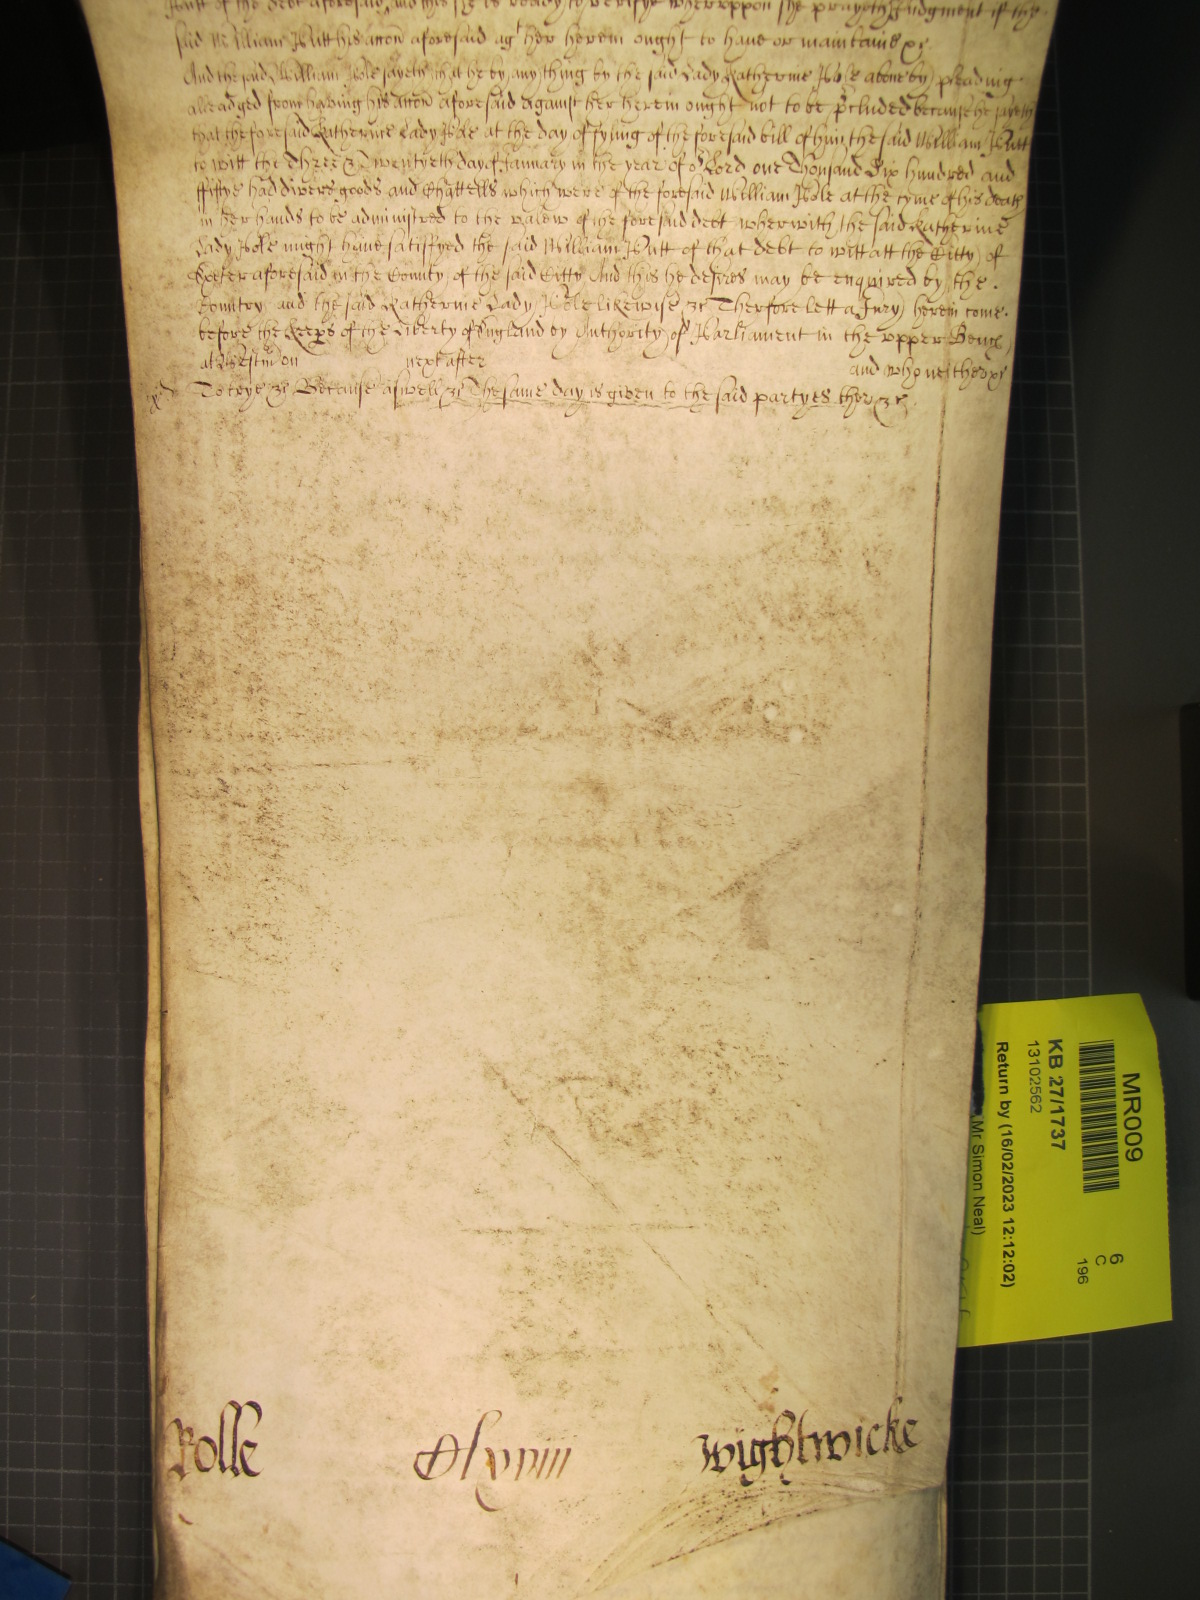 of the debt aforesaid and this she is ready to verifye wherevppon she prayeth Judgment if the
said William Putt his accon aforesaid agt her herein ought to haue or maintaine &c
And the said William Pole sayeth that he by any thing by the said Lady Katherine Pole aboue by pleading
alleadged from having his accon aforesaid against her herein ought not to be pcluded because he sayeth
that the foresaid Katherine Lady Pole at the day of fyling of the foresaid bill of him the said William Putt
to witt the Three & Twentyeth day of January in the year of or Lord one Thousand Six hundred and
ffiftye had divers goods and Chattells which were of the foresaid William Pole at the tyme of his death
in her hands to be administred to the valew of the foresaid debt wherwith the said Katherine
Lady Pole might haue satisfyed the said William Putt of that debt to witt att the Citty of
Exeter aforesaid in the County of the said Citty And this he desires may be enquired by the
Country and the said Katherine Lady Pole likewise &c Therfore lett a Jury herein come
before the Keeps of the Liberty of England by Authority of Parliament in the vpper Bench
at Westmon next after and who neither &c
To trye &c Because aswell &c The same day is given to the said partyes ther &c
Rolle
Wightwicke
MR009
KB 27/1737
13102562
Return by (16/02/2023 12:12:02)
Mr Simon Neal)
6
C
196